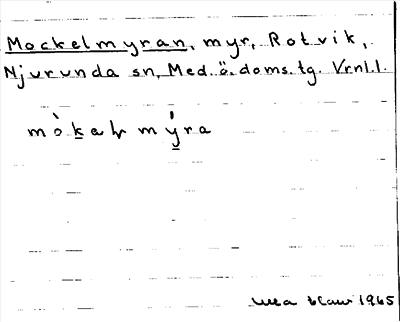 Mockelmyran, myr, Rotvik,
Njurunda sn, Med. ö. doms. tg. Vrnl. l.
mòkaɽ mýra
1965